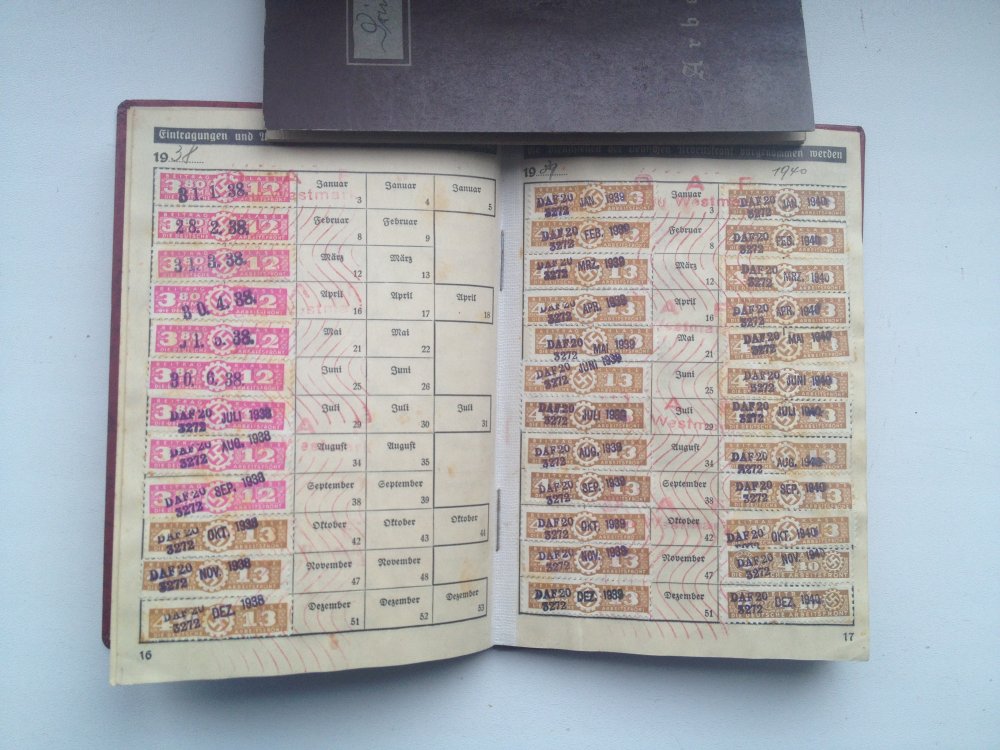 Eintragungen und
1938
BEITRAG KLASSE
380 12
DIE DEUTSCHE ARBEITSFRONT
31. 1. 38.
Januar 3
Januar 4
Januar 5
28. 2. 38.
Februar 8
Februar 9
31. 3. 38.
März 12
März 13
30. 4. 38.
April 16
April 17
April 18
31. 5. 38.
Mai 21
Mai 22
30. 6. 38.
Juni 25
Juni 26
DAF 20 JULI 1938
3272
Juli 29
Juli 30
Juli 31
DAF 20 AUG. 1938
3272
August 34
August 35
DAF 20 SEP. 1938
3272
September 38
September 39
DAF 20 OKT. 1938
3272
13
Oktober 42
Oktober 43
Oktober 44
DAF 20 NOV. 1938
3272
13
November 47
November 48
DAF 20 DEZ. 1938
3272
13
Dezember 51
Dezember 52
Dezember 53
16
der Deutschen Arbeitsfront vorgenommen werden
1939
1940
DAF
Westmark
DAF 20 JAN. 1939
3272
Januar 3
DAF 20 JAN. 1940
3272
DAF 20 FEB. 1939
3272
Februar 8
DAF 20 FEB. 1940
3272
DAF 20 MRZ. 1939
3272
März 12
DAF 20 MRZ. 1940
3272
DAF 20 APR. 1939
3272
April 16
DAF 20 APR. 1940
3272
DAF 20 MAI 1939
3272
Mai 21
DAF 20 MAI 1940
3272
DAF 20 JUNI 1939
3272
Juni 25
DAF 20 JUNI 1940
3272
DAF 20 JULI 1939
3272
Juli 29
DAF 20 JULI 1940
3272
DAF 20 AUG. 1939
3272
August 34
DAF 20 AUG. 1940
3272
DAF 20 SEP. 1939
3272
September 38
DAF 20 SEP. 1940
3272
DAF 20 OKT. 1939
3272
Oktober 42
DAF 20 OKT. 1940
3272
DAF 20 NOV. 1939
3272
November 47
DAF 20 NOV. 1940
3272
DAF 20 DEZ. 1939
3272
Dezember 51
DAF 20 DEZ. 1940
3272
DIE DEUTSCHE ARBEITSFRONT
17